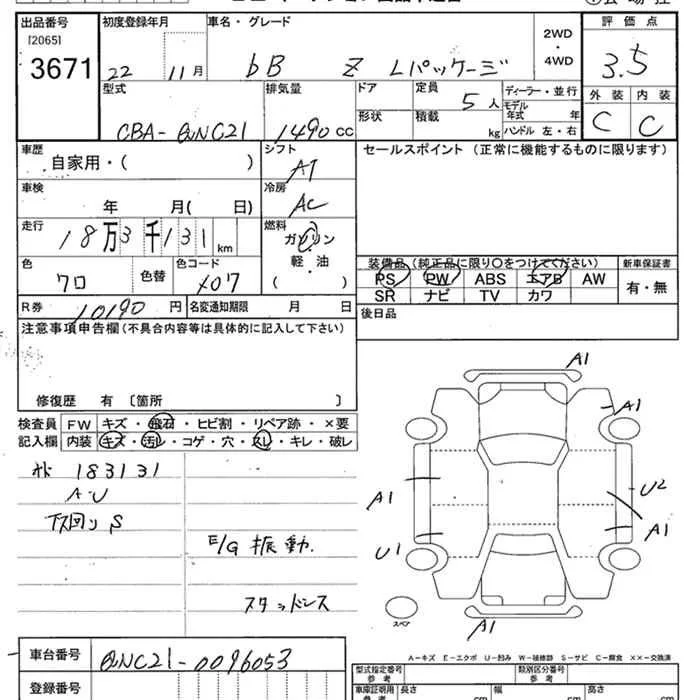 出品番号 初度登録年月 車名・グレード 評価点
[2065]
3671
22 11月 bB Z Lパッケージ
2WD
・
4WD
3.5
型式 排気量 ドア 定員 ディーラー・並行 外装 内装
5人 モデル
年式 年
CBA-QNC21 1490cc 形状 積載 kg ハンドル 左・右 C C
車歴 シフト セールスポイント (正常に機能するものに限ります)
自家用・( ) AT
車検 冷房
年 月( 日) AC
走行 燃料
18万3千131km ガソリン
軽・油
( )
色 色替 色コード
クロ X07
装備品 (純正品に限り○をつけてください) 新車保証書
PS PW ABS エアB AW 有・無
SR ナビ TV カワ
R券 10190円 名変通知期限 月 日 後日品
注意事項申告欄(不具合内容等は具体的に記入して下さい)
修復歴 有 〔箇所 〕
検査員 FW キズ・飛石・ヒビ割・リペア跡・×要
記入欄 内装 キズ・汚レ・コゲ・穴・スレ・キレ・破レ
183131
A・U
下回りS
E/G振動.
スタッドレス
A1
A1
A1
U2
A1
U1
A1
スペア
A-キズ E-エクボ U-凹み W-補修跡 S-サビ C-腐食 ××-交換済
車台番号 QNC21-0096053
登録番号
型式指定番号
参考
類別区分番号
参考
車庫証明用
参考
長さ cm 幅 cm 高さ cm